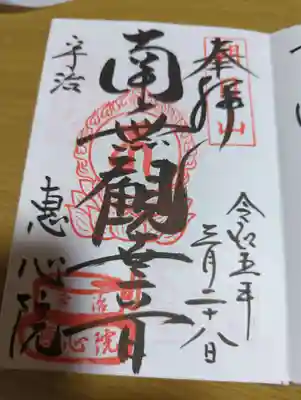 奉拝
朝日山
令和五年
三月二十八日
南無観世音
宇治
惠心院
宇治
心院